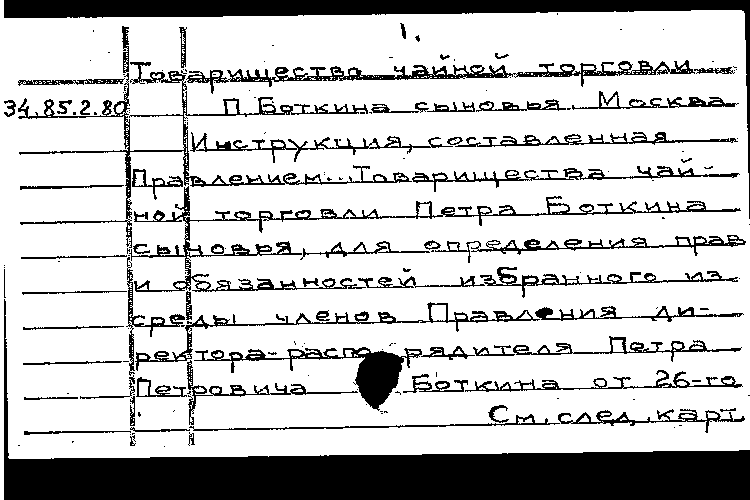 1.
Товарищество чайной торговли
34.85.2.80 П. Боткина сыновья. Москва
Инструкция, составленная
Правлением...Товарищества чай-
ной торговли Петра Боткина
сыновья, для определения прав
и обязанностей избранного из
среды членов Правления ди-
ректора-распорядителя Петра
Петровича Боткина от 26-го
См. след. карт.